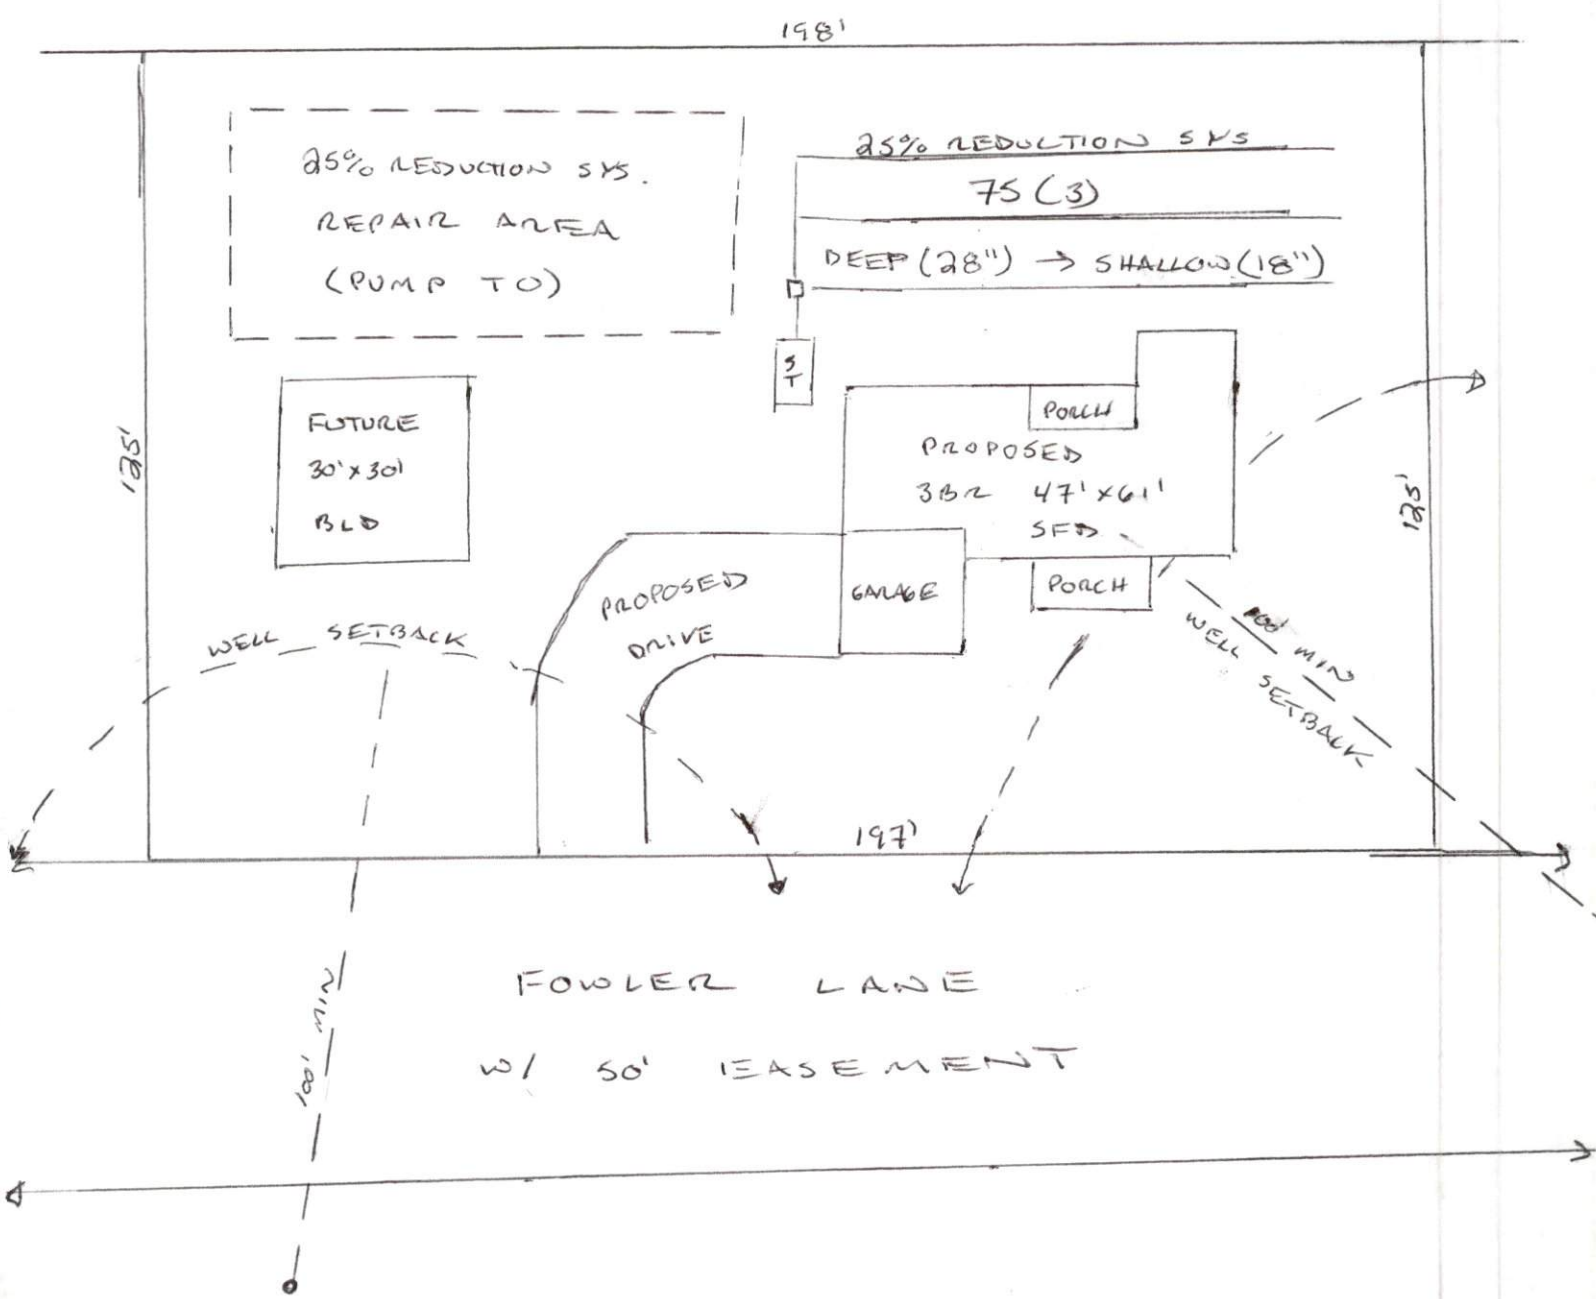 198'
25% REDUCTION SYS.
REPAIR AREA
(PUMP TO)
25% REDUCTION SYS
75 (3)
DEEP (28") → SHALLOW (18")
ST
125'
FUTURE
30' x 30'
BLD
PORCH
PROPOSED
3BR 47' x 61'
SFD
125'
PROPOSED
DRIVE
GARAGE
PORCH
WELL SETBACK
100' MIN
WELL SETBACK
197'
FOWLER LANE
W/ 50' EASEMENT
100' MIN